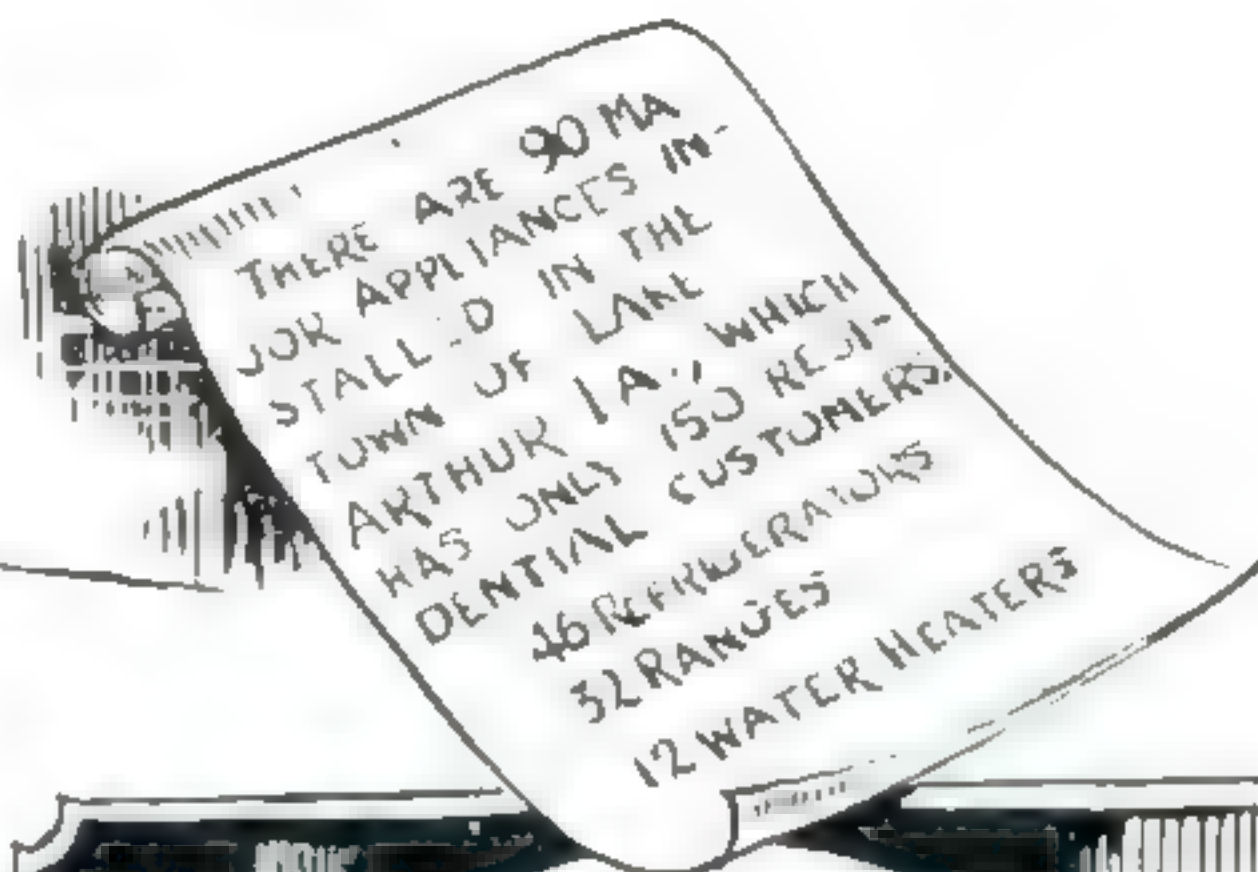 THERE ARE 90 MA
JOR APPLIANCES IN-
STALLED IN THE
TOWN OF LAKE
ARTHUR LA., WHICH
HAS ONLY 150 RESI-
DENTIAL CUSTOMERS.
46 REFRIGERATORS
32 RANGES
12 WATER HEATERS